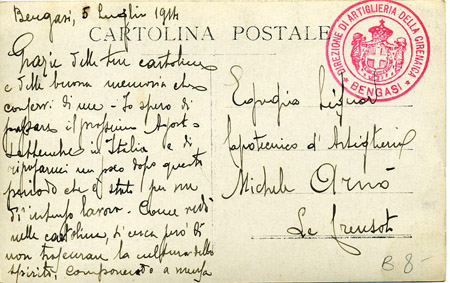 Bengasi, 5 Luglio 1914
CARTOLINA POSTALE
DIREZIONE DI ARTIGLIERIA DELLA CIRENAICA
* BENGASI *
Grazie delle tue cartoline
e della buona memoria che
conservi di me - Io spero di
passare il prossimo Agosto
Settembre in Italia e di
riposarmi un poco dopo questo
periodo che è stato per me
di intenso lavoro. Come vedi
nelle cartoline, di però di
non trascurare la cultura dello
spirito, componendo a
Egregio Signor
Capotecnico d'Artiglieria
Michele Arnò
Le Creusot
B 8-